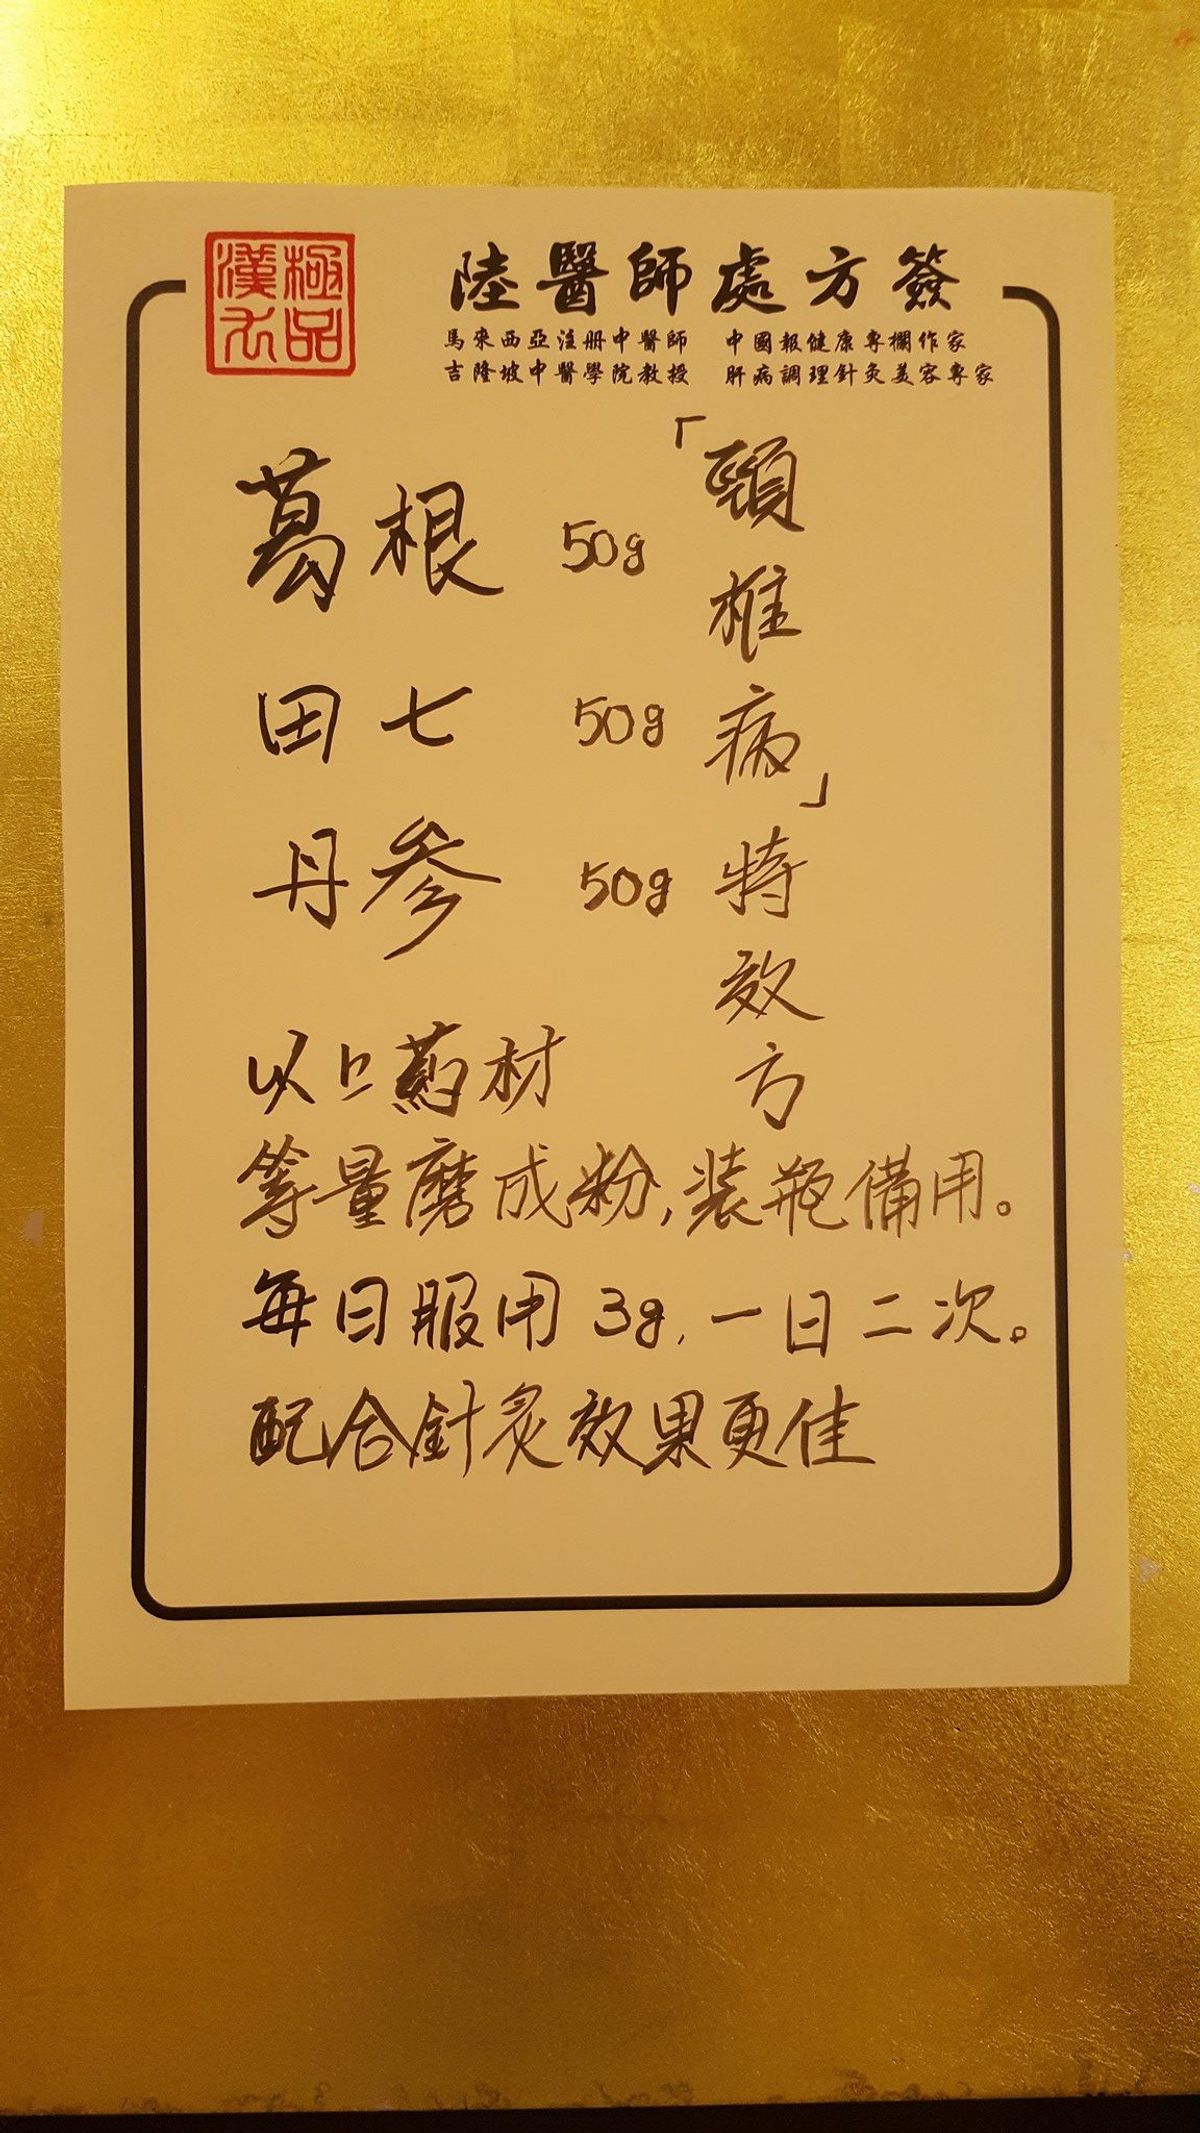 極品
漢方
陸醫師處方簽
馬來西亞注册中醫師 中國報健康專欄作家
吉隆坡中醫學院教授 肝病調理針灸美容專家
「頸椎病」特效方
葛根 50g
田七 50g
丹參 50g
以上药材
等量磨成粉,裝瓶備用。
每日服用3g,一日二次。
配合針炙效果更佳